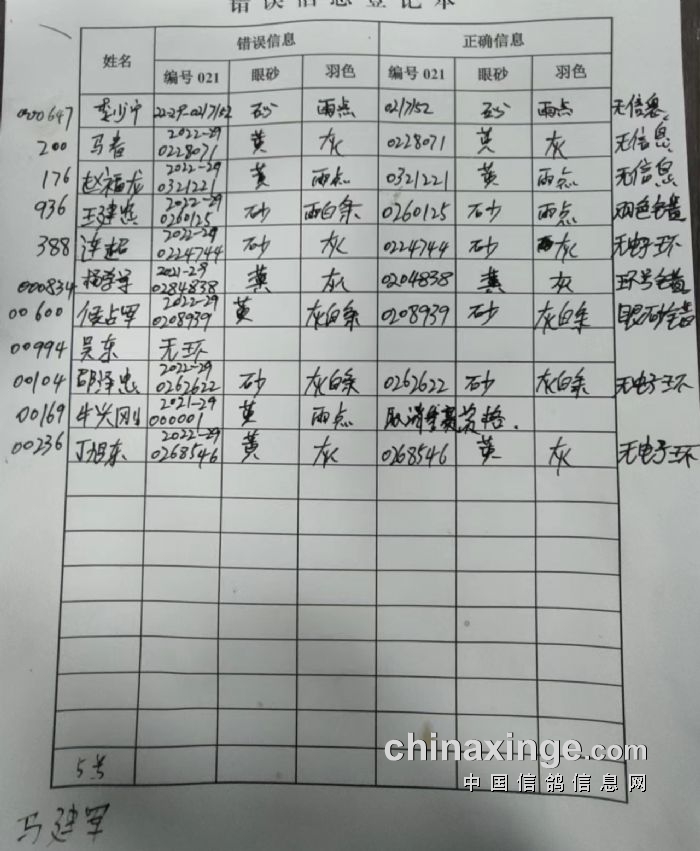 错误信息登记表
姓名 错误信息 正确信息
编号 021 眼砂 羽色 编号 021 眼砂 羽色
000647 李少宁 22-29-0217152 砂 雨点 0217152 砂 雨点 无信息
200 马春 2022-29
0228071 黄 灰 0228071 黄 灰 无信息
176 赵福龙 2022-29
0321221 黄 雨点 0321221 黄 雨点 无信息
936 王建忠 2022-29
0260125 砂 雨白条 0260125 砂 雨点 羽色错
388 2022-29
0224744 砂 灰 0224744 砂 灰 无电子环
000834 杨学军 2021-29
0284838 黄 灰 0204838 黄 灰 环号错
00600 侯占军 2022-29
0208939 黄 灰白条 0208939 砂 灰白条 眼砂错
00994 吴东 无环
00104 邵泽忠 2022-29
0262622 砂 灰白条 0262622 砂 灰白条 无电子环
00169 牛兴刚 2021-29
000001 黄 雨点 取消参赛资格.
00236 丁旭东 2022-29
0268546 黄 灰 0268546 黄 灰 无电子环
5号
马建军
chinaxinge.com
中国信鸽信息网